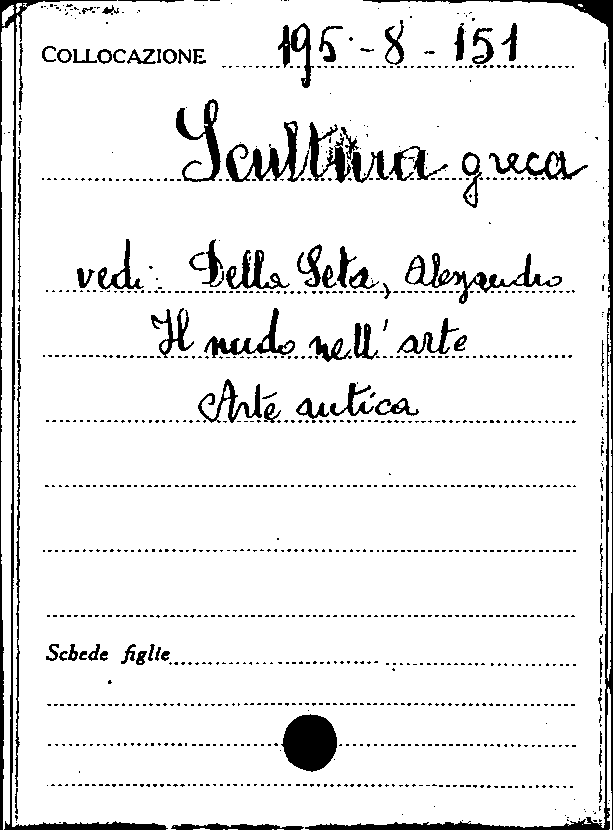 COLLOCAZIONE 195-8-151
Scultura greca
vedi: Della Seta, Alessandro
Il nudo nell'arte
Arte antica
Schede figlie